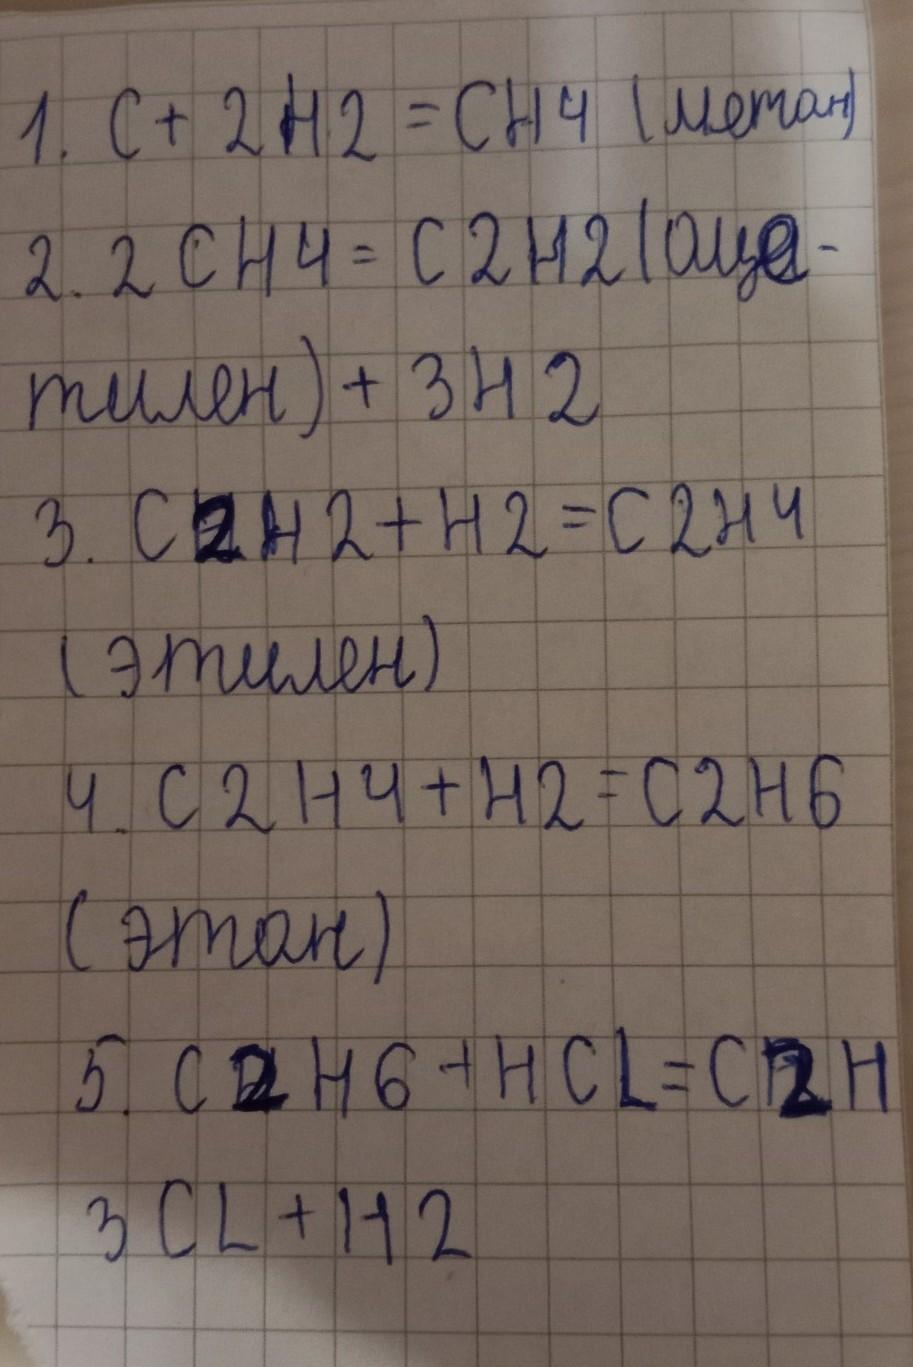 1. C + 2H2 = CH4 (метан)
2. 2CH4 = C2H2 (аце-
тилен) + 3H2
3. C2H2 + H2 = C2H4
(этилен)
4. C2H4 + H2 = C2H6
(этан)
5. C2H6 + HCL = C2H
3CL + H2